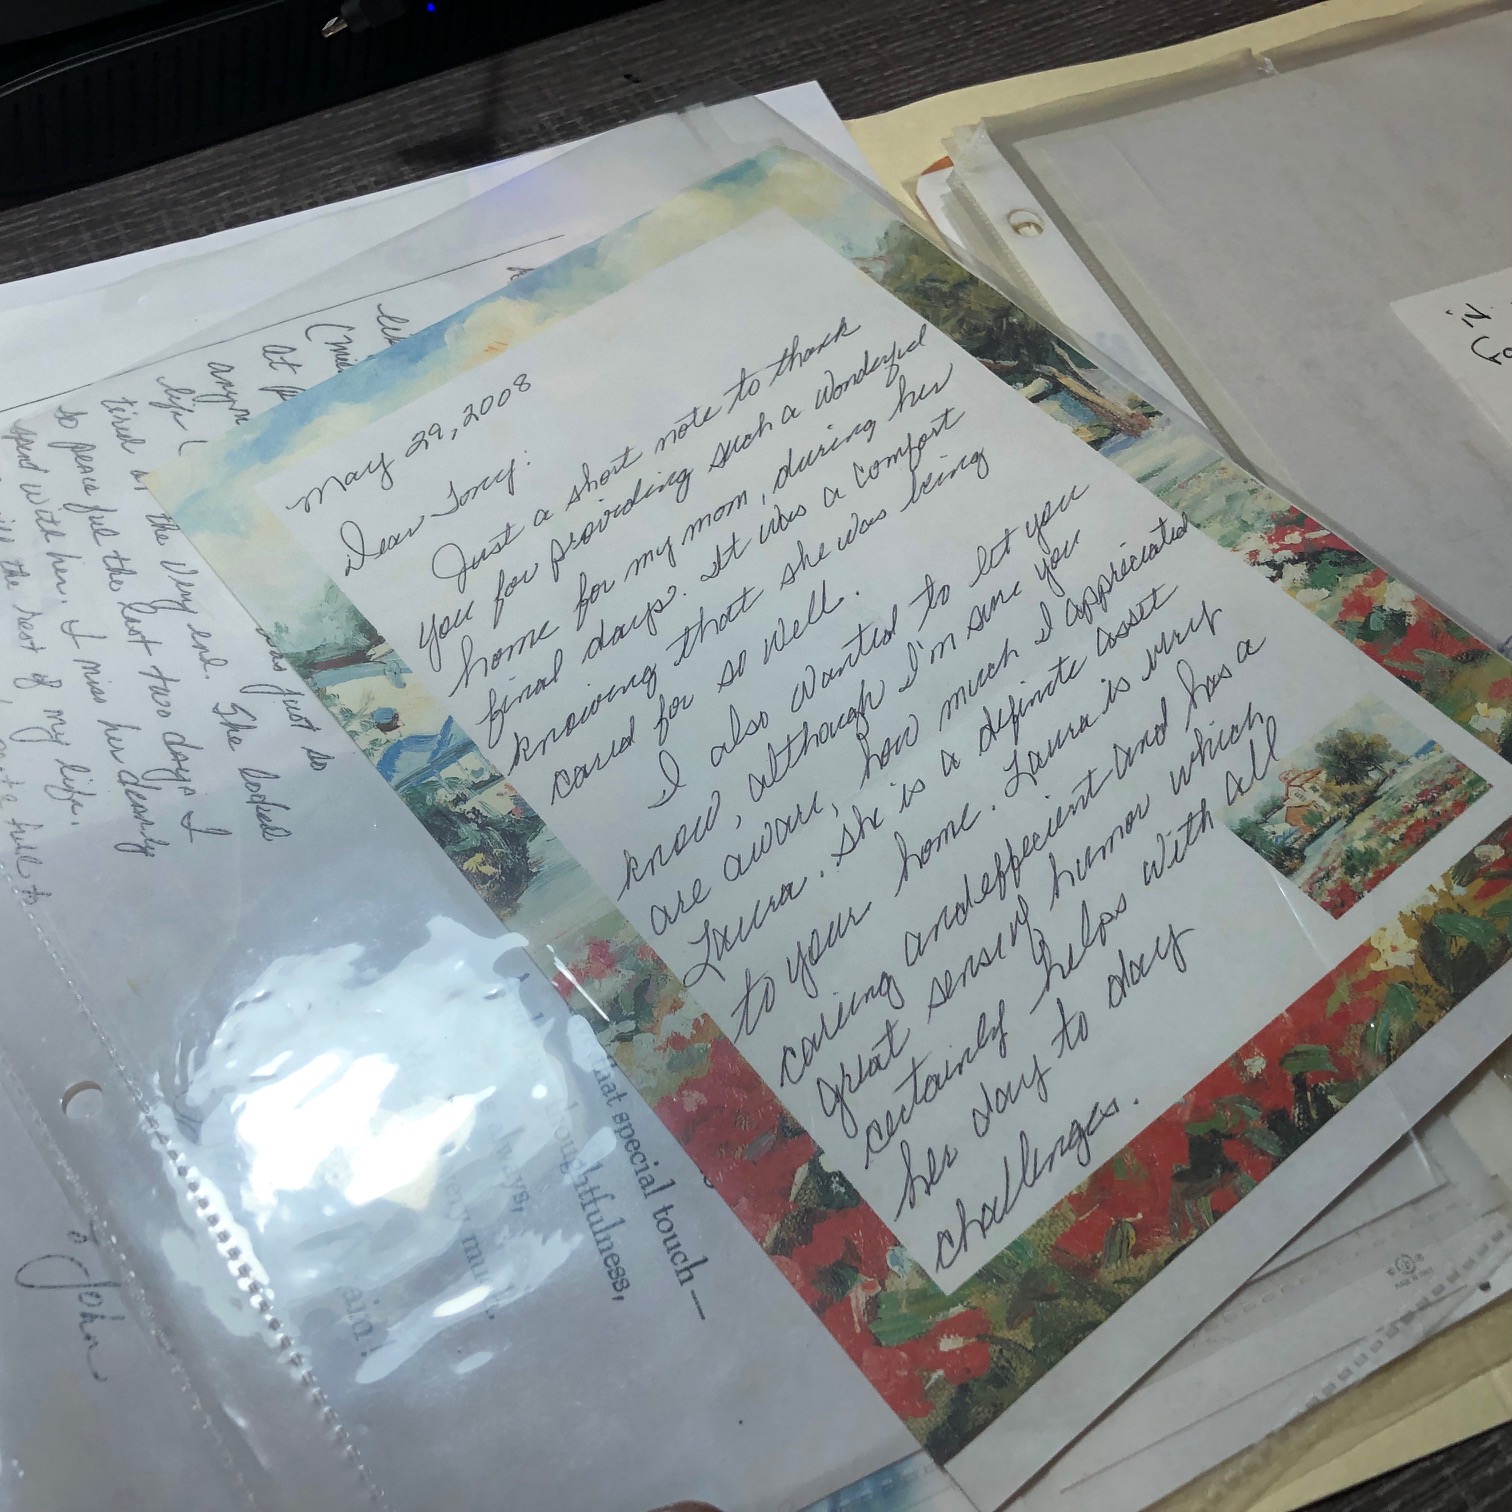 May 29, 2008
Dear Tony:
Just a short note to thank
you for providing such a wonderful
home for my mom, during her
final days. It was a comfort
knowing that she was being
cared for so well.
I also wanted to let you
know, although I'm sure you
are aware, how much I appreciated
Laura. She is a definite asset
to your home. Laura is very
caring and efficient and has a
great sense of humor which
certainly helps with all
her day to day
challenges.
at
life (
tired
the very end. She looked
so peaceful the last two days I
spend with her. I miss her dearly
the rest of my life.
was just so
John
that special touch—
thoughtfulness,
always,
very much.